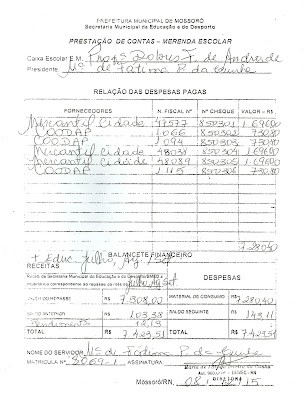 PREFEITURA MUNICIPAL DE MOSSORÓ
Secretaria Municipal da Educação e do Desporto
PRESTAÇÃO DE CONTAS - MERENDA ESCOLAR
Caixa Escolar E.M. Profª Dolores F. de Andrade
Presidente Mª de Fátima P. da
RELAÇÃO DAS DESPESAS PAGAS
FORNECEDORES N. FISCAL Nº Nº CHEQUE VALOR - R$
Mercantil Cidade 47577 850301 1.696,00
COODAP 1.066 850302 730,80
COODAP 1094 850303 730,80
Mercantil Cidade 48038 850304 1.696,00
Mercantil Cidade 48089 850305 1.696,00
COODAP 1.115 850306 730,80
7.280,40
BALANCETE FINANCEIRO
RECEITAS
DESPESAS
VALOR DO REPASSE 7.308,02 MATERIAL DE CONSUMO R$ 7.280,40
SALDO ANTERIOR 103,38 SALDO SEGUINTE R$ 143,11
Rendimentos 12,13
TOTAL R$ 7.423,51 TOTAL R$ 7.423,51
NOME DO SERVIDOR Mª de Fátima P. da
MATRICULA Nº 3069-1 ASSINATURA:
DIRETORA
Mossoró/RN,